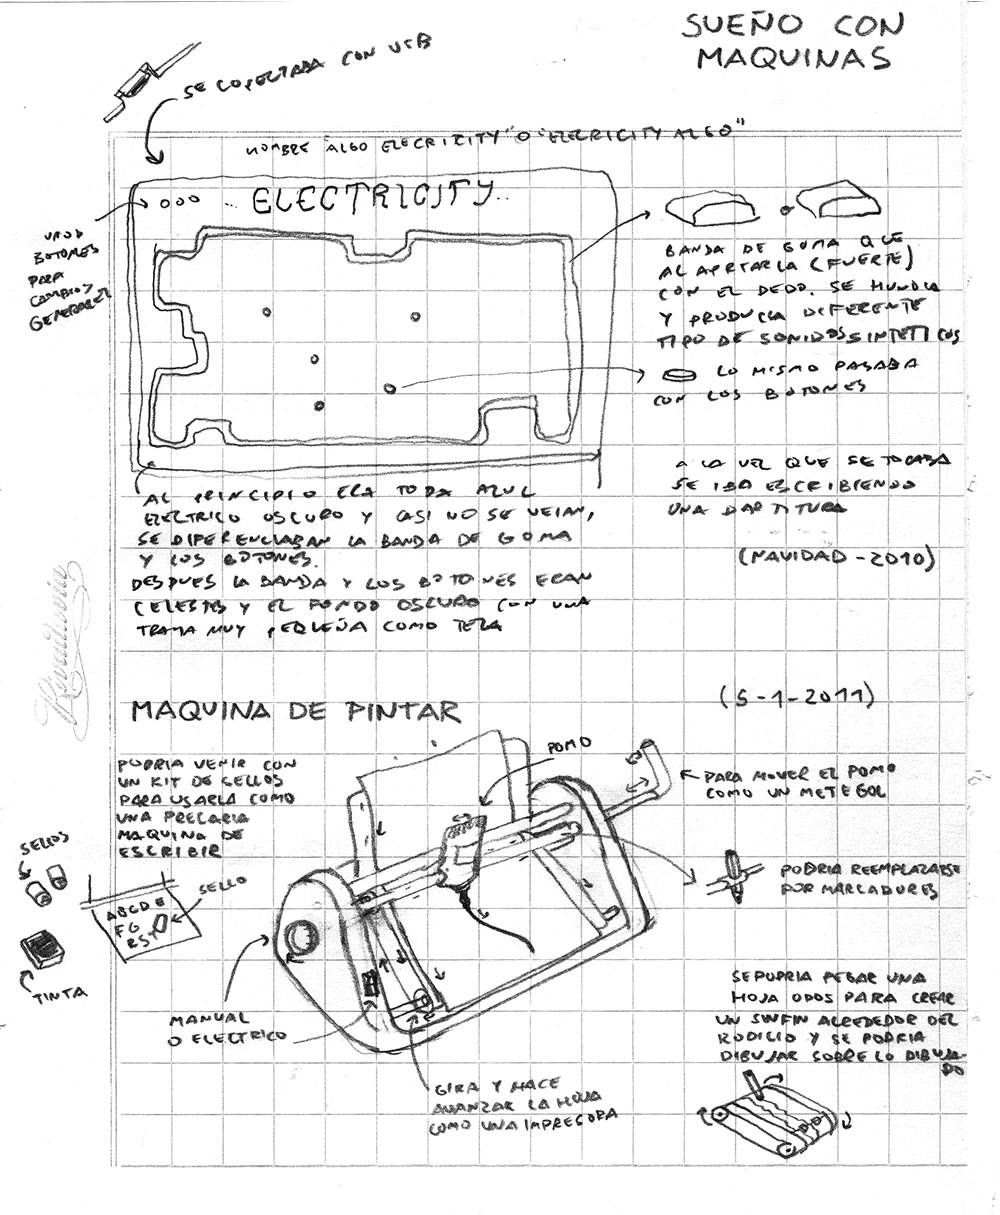 SUEÑO CON
MAQUINAS
SE CONECTABA CON USB
NOMBRE "ALGO ELECRICITY" O "ELECRICITY ALGO"
ELECTRICITY
UNOS
BOTONES
PARA
CAMBIOS
GENERALES
BANDA DE GOMA QUE
AL APRTARLA (FUERTE)
CON EL DEDO, SE HUNDIA
Y PRODUCIA DIFERENTE
TIPO DE SONIDOS SINTETICOS
LO MISMO PASABA
CON LOS BOTONES
A LA VEZ QUE SE TOCABA
SE IBA ESCRIBIENDO
UNA PARTITURA
(NAVIDAD - 2010)
AL PRINCIPIO ERA TODA AZUL
ELECTRICO OSCURO Y CASI NO SE VEIAN,
SE DIFERENCIABAN LA BANDA DE GOMA
Y LOS BOTONES.
DESPUES LA BANDA Y LOS BOTONES ERAN
CELESTES Y EL FONDO OSCURO CON UNA
TRAMA MUY PEQUEÑA COMO TELA
Rivadavia
MAQUINA DE PINTAR
(5-1-2011)
PODRIA VENIR CON
UN KIT DE SELLOS
PARA USARLA COMO
UNA PRECARIA
MAQUINA DE
ESCRIBIR
POMO
PARA MOVER EL POMO
COMO UN METEGOL
SELLOS
SELLO
ABCDE
FG
RST
TINTA
PODRIA REEMPLAZARSE
POR MARCADORES
MANUAL
O ELECTRICO
GIRA Y HACE
AVANZAR LA HOJA
COMO UNA IMPRESORA
SE PUDRIA PEGAR UNA
HOJA O DOS PARA CREAR
UN SINFIN ALREDEDOR DEL
RODILLO Y SE PODRIA
DIBUJAR SOBRE LO DIBUJA-
DO